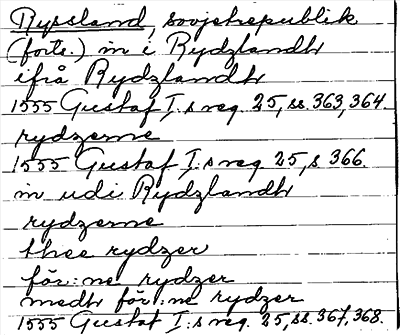 Ryssland, sovjetrepublik
(forts.) in i Rydzlandh
ifrå Rydzlandh
1555 Gustaf I:s reg. 25, ss. 363, 364.
rydzerne
1555 Gustaf I:s reg. 25, s. 366.
in udi Rydzlandh
rydzerne
thee rydzer
för:ne rydzer
medh för:ne rydzer
1555 Gustaf I:s reg. 25, ss. 367, 368.